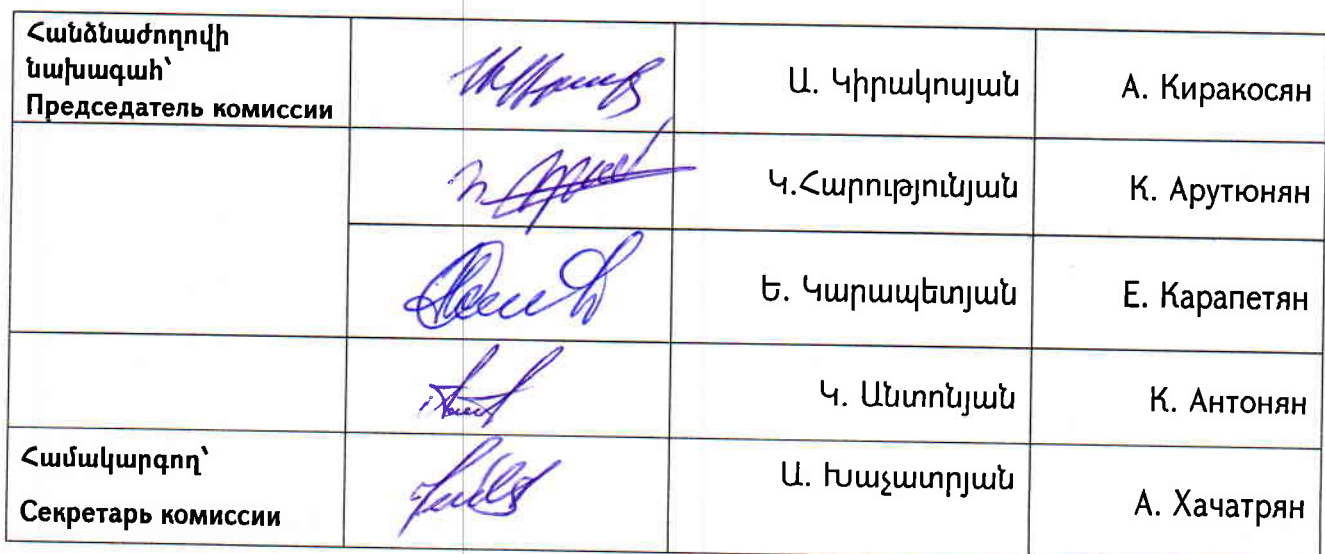 Հանձնաժողովի
նախագահ՝
Председатель комиссии
Ա. Կիրակոսյան
А. Киракосян
Կ.Հարությունյան
К. Арутюнян
Ե. Կարապետյան
Е. Карапетян
Կ. Անտոնյան
К. Антонян
Համակարգող՝
Секретарь комиссии
Ա. Խաչատրյան
А. Хачатрян